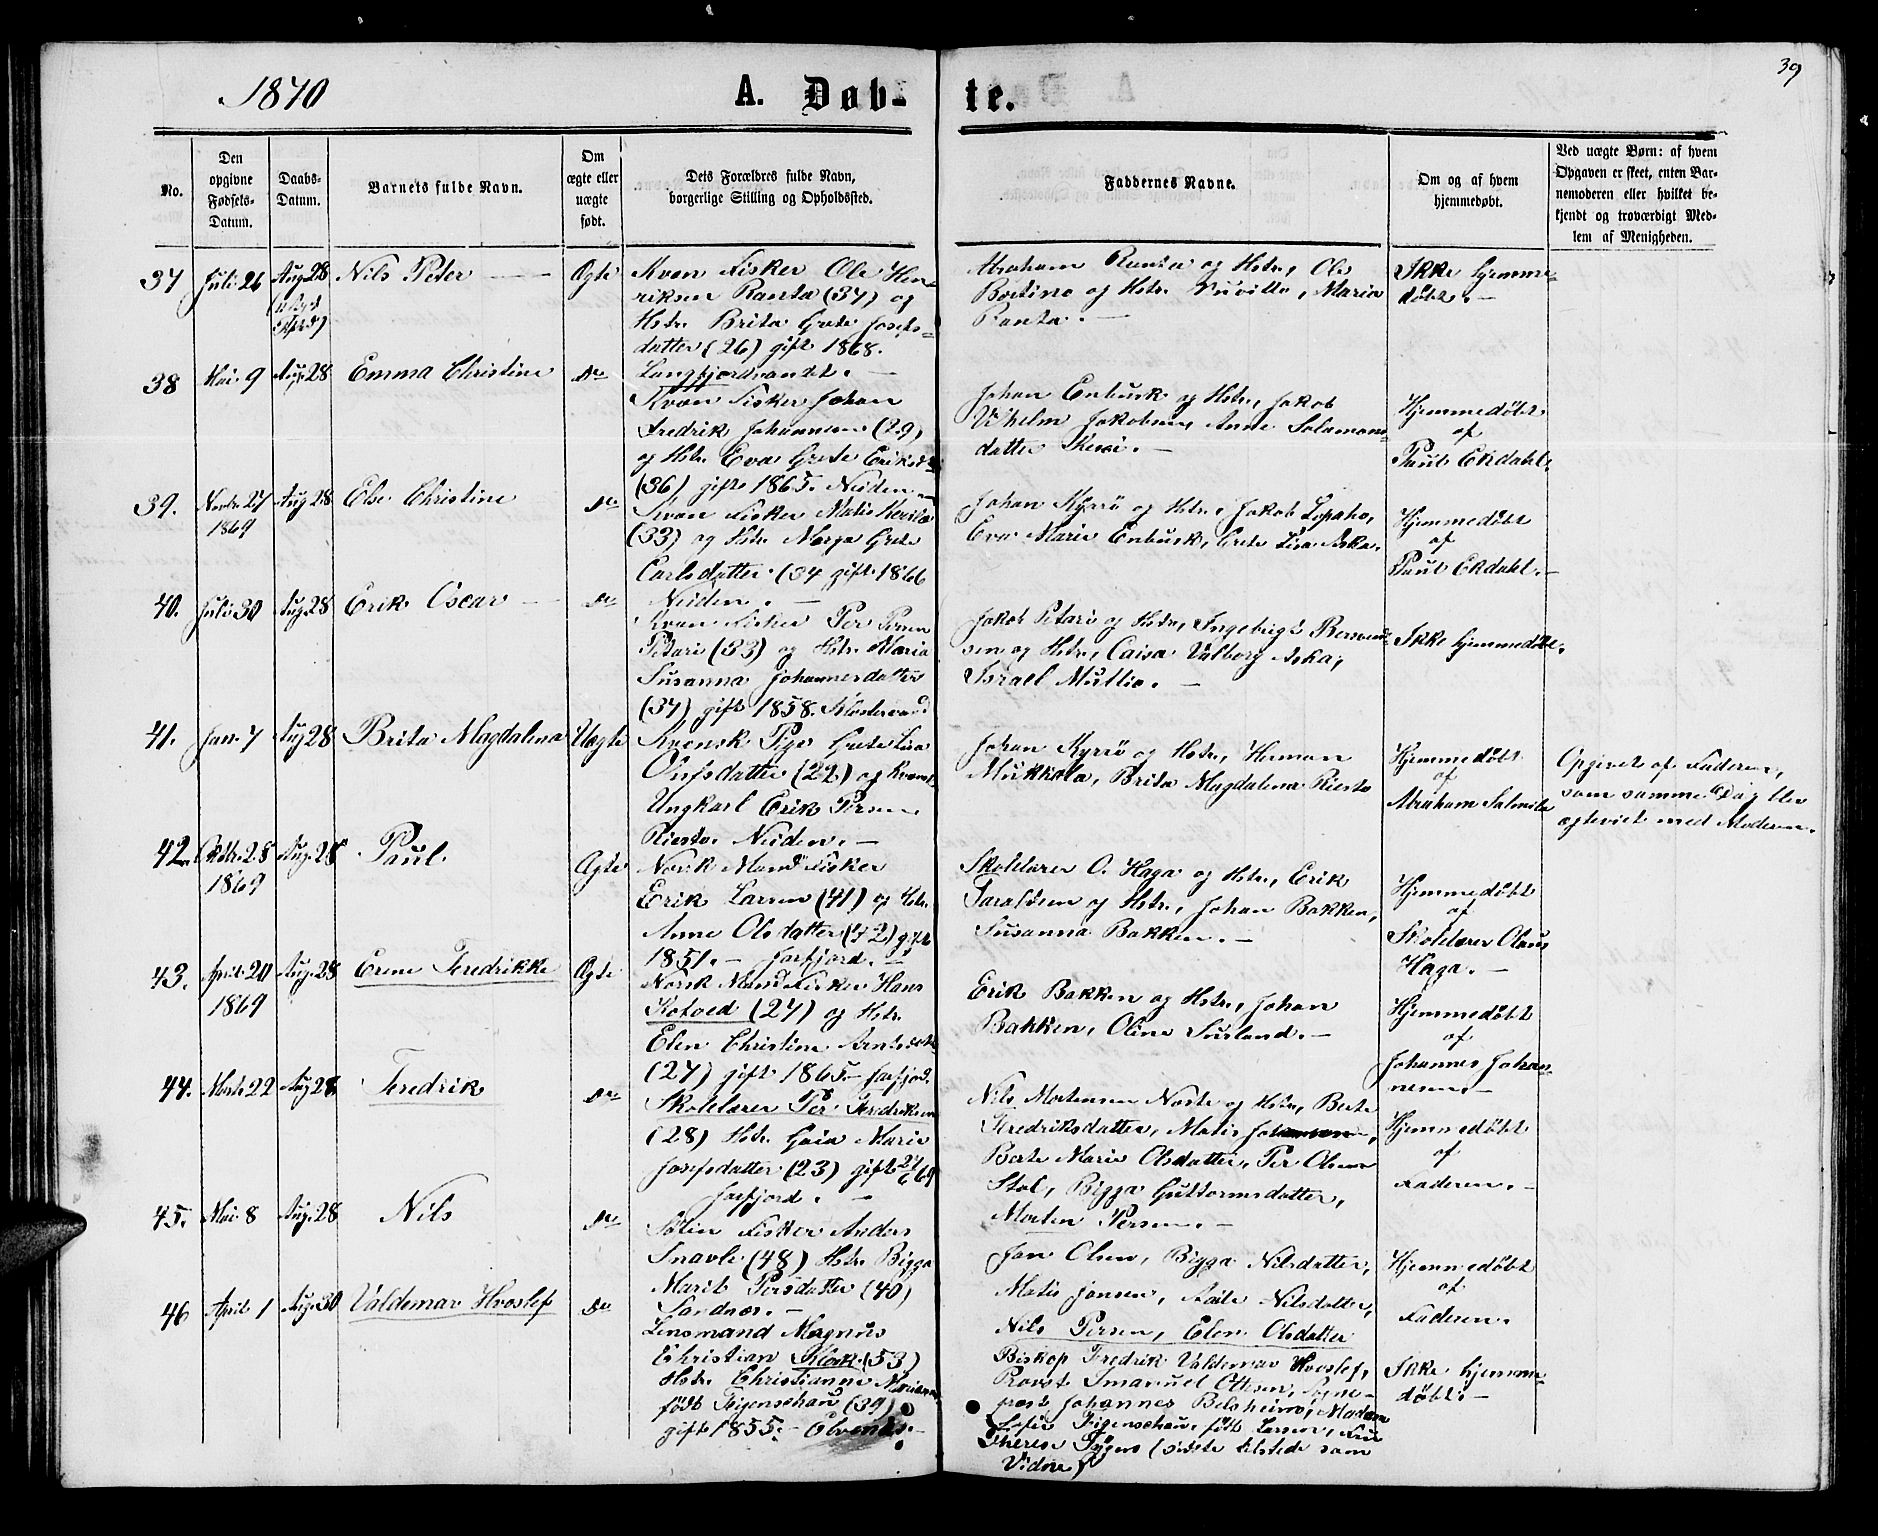 1870
A. Døb-
te.
39
No.
Den opgivne Fødsels-Datum.
Daabs-Datum.
Barnets fulde Navn.
Om ægte eller uægte født.
Dets Forældres fulde Navn, borgerlige Stilling og Opholdssted.
Faddernes Navne.
Om og af hvem hjemmedøbt.
Ved uægte Børn: af hvem Opgaven er skeet, enten Barnemoderen eller hvilket bekjendt og troværdigt Medlem af Menigheden.
37 Juli 26 Aug 28 Nils Peter Ægte
Kvæn Fisker Ole Hen-
riksen Ranta (37) og
Hstr. Brita Grete Josefs-
datter (26) gift 1868.
Langfjordvandet.
Abraham Ranta og Hstr, Ole
og Hstr. Maria
Ranta.
Ikke hjemme-
døbt.
38 Mai 9 Aug. 28 Emma Christine Do
Kvæn Fisker Johan
Fredrik Johannesen (29)
og Hstr. Eva Grete Eriksd
(36) gift 1865. Neiden
Johan Enbusk og Hstr, Jakob
Vilhelm Jakobsen, Anne Salamons-
datter
Hjemmedøbt
af
Paul Ekdahl.
39. Novbr. 27 1869 Aug 28 Else Christine Do
Kvæn Fisker Matis
(33) og Hstr. Marja Grete
Carlsdatter (34 gift 1866
Neiden.
Johan Kyrrö og Hstr, Jakob Lopaho,
Eva Marie Enbusk, Grete Lisa Aska.
Hjemmedøbt
af
Paul Ekdahl.
40. Juli 30 Aug. 28 Erik Oscar Do
Kvæn Fisker Per Persen
Petari (33) og Hstr Maria
Susanna Johannesdatter
(37) gift 1858. Klostervand
Jakob Petari og Hstr, Ingebrigt
sen og Hstr, Caisa Valborg Aska,
Israel Mullia.
Ikke hjemmedøbt.
41. Jan. 7 Aug 28 Brita Magdalena Uægte
Kvensk Pige Grete Lisa
Olufsdatter (22) og Kvænsk
Ungkarl Erik Persen
Riesto. Neiden.
Johan Kyrrö og Hstr, Herman
Mukkala, Brita Magdalena Riesto
Hjemmedøbt
af
Abraham
Opgivet af Faderen,
som samme Dag blev
ægteviet med Moderen.
42. Octbr. 28 1869 Aug. 28 Paul Ægte
Norsk Mand Fisker
Erik Larsen (41) og Hstr.
Anne Olsdatter (42) gift
1851. Jarfjord.
Skolelærer O. Haga og Hstr, Erik
Taraldsen og Hstr, Johan Bakken,
Susanna Bakken.
Hjemmedøbt
af
Skolelærer Olaus
Haga.
43. April 20 1869 Aug. 28 Erene Feredrikke Ægte
Norsk Mand Fisker Hans
Kotoed (27) og Hstr.
Elen Christine Arntsdatt
(27) gift 1865. Jarfjord.
Erik Bakken og Hstr, Johan
Bakken, Oline Suuland.
Hjemmedøbt
af
Johannes Johan-
nesen.
44. Marts 22 Aug 28 Feredrik Do
Skolelærer Per Feredriksen
(28) Hstr. Gaia Marie
Josefsdatter (23) gift 27/6 69
Jarfjord.
Nils Mortensen Noste og Hstr, Berte
Feredriksdatter, Matis Johannesen,
Berte Marie Olsdatter, Per Olsen
Stol, Bigga Guttormsdatter,
Morten Persen.
Hjemmedøbt
af
Faderen.
45. Mai 8 Aug. 28 Nils Do
Søfin Fisker Anders
Snavle (48) Hstr. Bigga
Marit Persdatter (40)
Sandnæs.
Jon Olsen, Bigga Nilsdatter,
Matis Jonsen, Nilsdatter,
Nils Persen, Elen Olsdatter
Hjemmedøbt
af
Faderen.
46 April 1 Aug. 30 Valdemar Hvoslef Do
Lensmand Magnus
Christian Klerk (53)
Hstr. Christianne
født Figenschau (39)
gift 1855. Elvenæs.
Biskop Feredrik Valdemar Hvoslef,
Provst Imanuel Ottesen, Sogne-
præst Johannes Belsheim, Madam
Sofie Figenschau, født Larsen, Frk
Therese (sidste tilstede som
Vidne)
Ikke hjemme-
døbt.